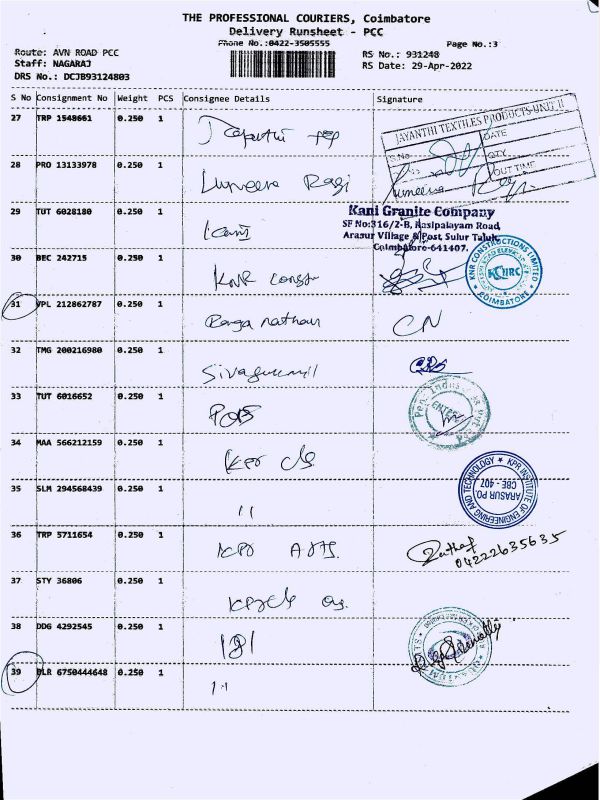 THE PROFESSIONAL COURIERS, Coimbatore
Delivery Runsheet - PCC
Phone No.:0422-3505555
Page No.:3
Route: AVN ROAD PCC
Staff: NAGARAJ
DRS No.: DCJB93124803
RS No.: 931248
RS Date: 29-Apr-2022
S No Consignment No Weight PCS Consignee Details Signature
27 TRP 1548661 0.250 1
JAYANTHI TEXTILES PRODUCTS-UNIT II
S.No DATE
QTY
OUT TIME
28 PRO 13133978 0.250 1
29 TUT 6028180 0.250 1 Kani
Kani Granite Company
SF No:316/2-B, Rasipalayam Road,
Arasur Village & Post, Sulur Taluk,
Coimbatore-641407.
30 BEC 242715 0.250 1 KNR Const
KNR CONSTRUCTIONS LIMITED
KNRC
COIMBATORE
31 VPL 212862787 0.250 1 Ranganathan CN
32 TMG 200216980 0.250 1
33 TUT 6016652 0.250 1
34 MAA 566212159 0.250 1 KPR clg
35 SLM 294568439 0.250 1 11
KPR INSTITUTE OF ENGINEERING AND TECHNOLOGY
ARASUR PO.
CBE - 407
36 TRP 5711654 0.250 1 KPR ARTS.
04222635635
37 STY 36806 0.250 1
38 DDG 4292545 0.250 1
39 BLR 6750444648 0.250 1 11